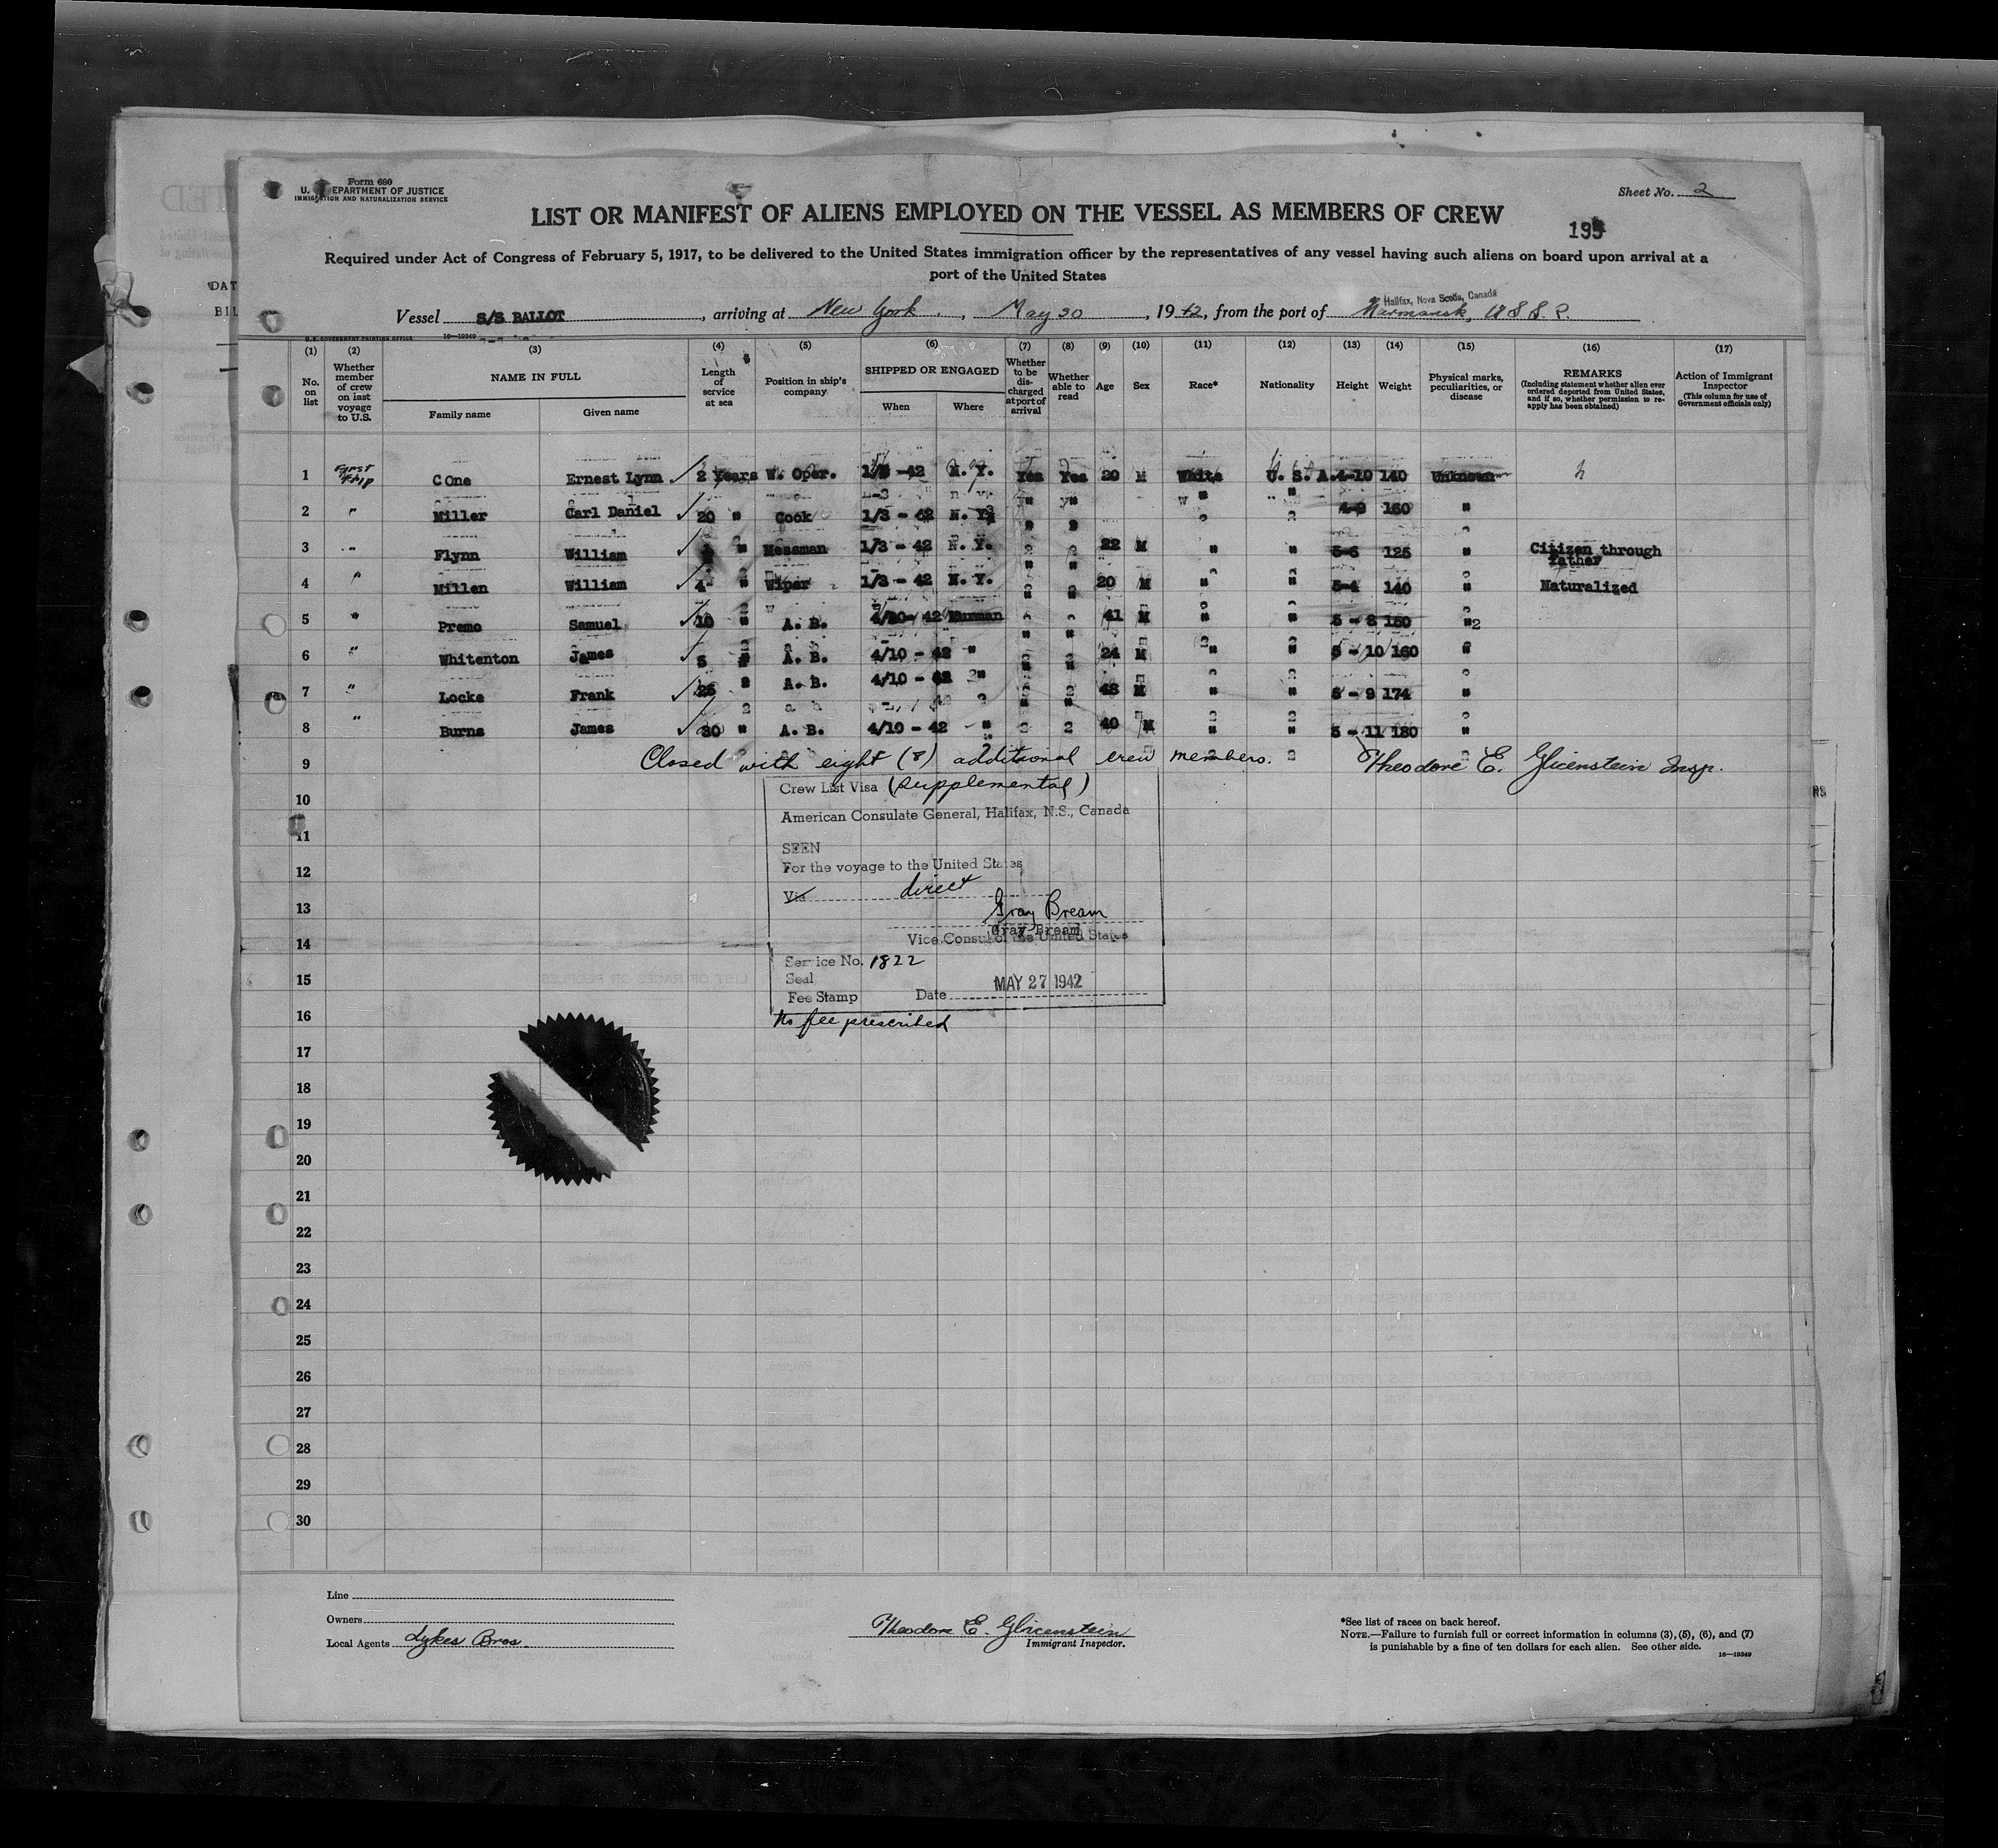 Form 680
U. S. DEPARTMENT OF JUSTICE
IMMIGRATION AND NATURALIZATION SERVICE
Sheet No. 2
LIST OR MANIFEST OF ALIENS EMPLOYED ON THE VESSEL AS MEMBERS OF CREW
Required under Act of Congress of February 5, 1917, to be delivered to the United States immigration officer by the representatives of any vessel having such aliens on board upon arrival at a
port of the United States
Halifax, Nova Scotia, Canada
Vessel S/S BALLOT, arriving at New York, May 30, 1942, from the port of Murmansk, U S S R.
U.S. GOVERNMENT PRINTING OFFICE 16—19349
(1) No. on list
(2) Whether member of crew on last voyage to U.S.
(3) NAME IN FULL
Family name Given name
(4) Length of service at sea
(5) Position in ship's company
(6) SHIPPED OR ENGAGED
When Where
(7) Whether to be discharged at port of arrival
(8) Whether able to read
(9) Age
(10) Sex
(11) Race*
(12) Nationality
(13) Height
(14) Weight
(15) Physical marks, peculiarities, or disease
(16) REMARKS
(Including statement whether alien ever ordered deported from United States, and if so, whether permission to reapply has been obtained)
(17) Action of Immigrant Inspector
(This column for use of Government officials only)
1 First trip COne Ernest Lynn 2 Years W. Oper. -42 N. Y. Yes Yes 20 M White U. S. A. 4-10 140 Unknown
2 " Miller Carl Daniel 20 " Cook 1/3 - 42 N. Y. " " " " 4-9 160 "
3 " Flynn William " Messman 1/3 - 42 N. Y. " " 22 M " " 5-6 125 " Citizen through father
4 " Millen William 4 " Wiper 1/3 - 42 N. Y. " " 20 M " " 5-4 140 " Naturalized
5 " Premo Samuel 10 " A. B. 4/10- 42 Murman " " 41 M " " 5 - 8 150 "
6 " Whitenton James 5 " A. B. 4/10 - 42 " " " 24 M " " 5 - 10 160 "
7 " Locke Frank 25 " A. B. 4/10 - 42 " " " 48 M " " 5 - 9 174 "
8 " Burns James 30 " A. B. 4/10 - 42 " " " 40 M " " 5 - 11 180 "
9 Closed with eight (8) additional crew members. Theodore E. Glicenstein Insp.
10
11
12
13
14
15
16
17
18
19
20
21
22
23
24
25
26
27
28
29
30
Crew List Visa (Supplemental)
American Consulate General, Halifax, N.S., Canada
SEEN
For the voyage to the United States
Via direct
Gray Bream
Gray Bream
Vice Consul of the United States
Service No. 1822
Seal
Fee Stamp Date MAY 27 1942
No fee prescribed
Line
Owners
Local Agents Lykes Bros.
Theodore E. Glicenstein
Immigrant Inspector.
*See list of races on back hereof.
NOTE.—Failure to furnish full or correct information in columns (3), (5), (6), and (7)
is punishable by a fine of ten dollars for each alien. See other side.
16—19349